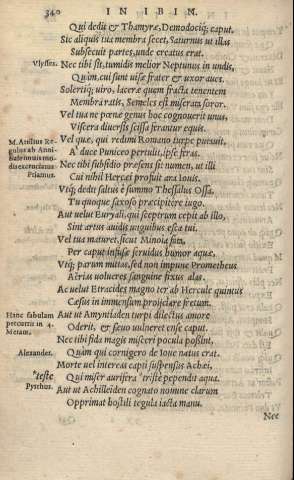 340 IN IBIN.
Qui dedit & Thamyræ, Demodociq; caput.
Sic aliquis tua membra secet, Saturnus ut illas
Subsecuit partes, unde creatus erat.
Vlysses. Nec tibi sit, tumidis melior Neptunus in undis,
Quàm, cui sunt uisæ frater & uxor aues.
Solertiq; uiro, laceræ quem fracta tenentem
Membra ratis, Semeles est miserata soror.
Vel tua ne pœnæ genus hoc cognouerit unus,
Viscera diuersis scissa ferantur equis.
M. Attilius Re- Vel quæ, qui redimi Romano turpe putauit,
gulus ab Anni- A' duce Puniceo pertulit, ipse feras.
bale
Nec tibi subsidio præsens sit numen, ut illi
Priamus. Cui nihil Hercei profuit ara Iouis.
Vtq; dedit saltus è summo Thessalus Ossa,
Tu quoque saxoso præcipitere iugo.
Aut uelut Euryali, qui sceptrum cepit ab illo,
Sint artus auidis anguibus esca tui.
Vel tua maturet, sicut Minoia fata,
Per caput infusæ feruidus humor aquæ,
Vtq; parum mitis, sed non impune Prometheus
Aërias uolucres sanguine fixus alas.
Ac uelut Etracides magno ter ab Hercule quintus
Cæsus in immensum proijciare fretum.
Hanc fabulam Aut ut Amyntiaden turpi dilectus amore
percurrit in 4. Oderit, & sæuo uulneret ense caput.
Metam. Nec tibi fida magis misceri pocula possint,
Alexander. Quàm qui cornigero de Ioue natus erat.
Morte uel intereas capti suspensus Achæi,
*teste Qui miser aurifera *triste pependit aqua.
Pyrrhus. Aut ut Achilleiden cognato nomine clarum
Opprimat hostili tegula iacta manu.
Nec